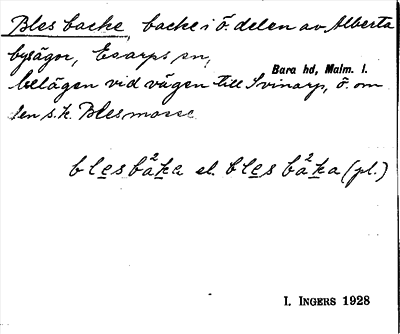 Bles backe, backe i ö. delen av Alberta
bysägor, Esarps sn,
Bara hd, Malm. l.
belägen vid vägen till Svinarp, ö. om
den s.k. Blesmosse
blesbake el. blesbaka (pl.)
I. INGERS 1928